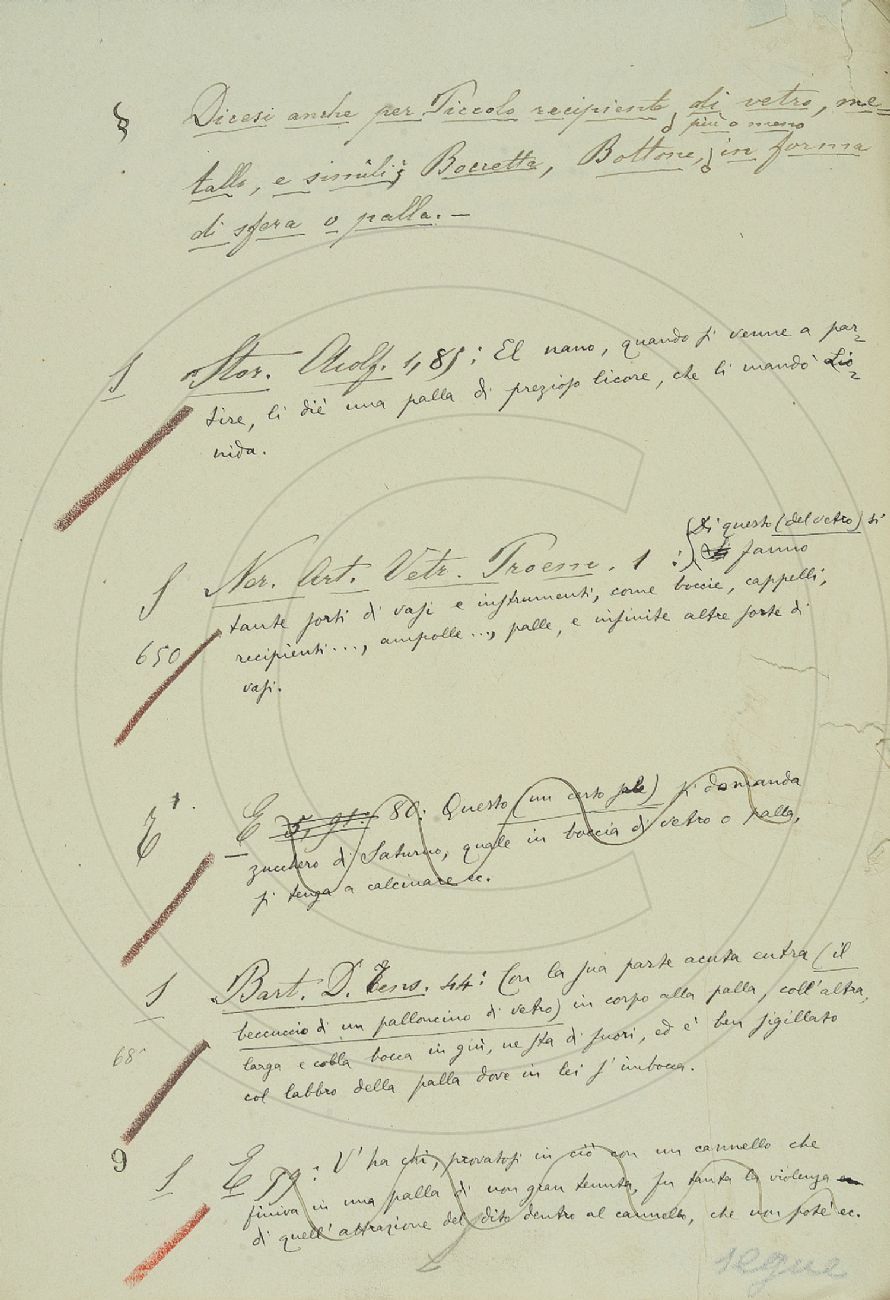 § Dicesi anche per Piccolo recipiente di vetro, me=
o più o meno
tallo, e simili; Boccetta, Bottone, in forma
di sfera o palla. —
S Stor. Aiolf. 1, 85: El nano, quando si venne a par=
tire, li diè una palla di prezioso licore, che li mandò Lio=
nida.
(Di questo (del vetro) si
S Ner. Art. Vetr. Proem. 1: fanno
tante sorti di vasi e instrumenti, come boccie, cappelli,
650 recipienti..., ampolle..., palle, e infinite altre sorte di
vasi.
E E 80: Questo (un certo sale) si domanda
zucchero di Saturno, quale in boccia di vetro o palla,
si tenga a calcinare ec.
S Bart. D. Tens. 44: Con la sua parte acuta entra (il
beccuccio di un palloncino di vetro) in corpo alla palla, coll'altra,
larga e colla bocca in giù, ne sta di fuori, ed è ben sigillato
68
col labbro della palla dove in lei s'imbocca.
9 S E 59: V'ha chi, provatosi in ciò con un cannello che
finiva in una palla di non gran tenuta, fu tanta la violenza
di quell'attrazione del dito dentro al cannello, che non potè ec.
segue